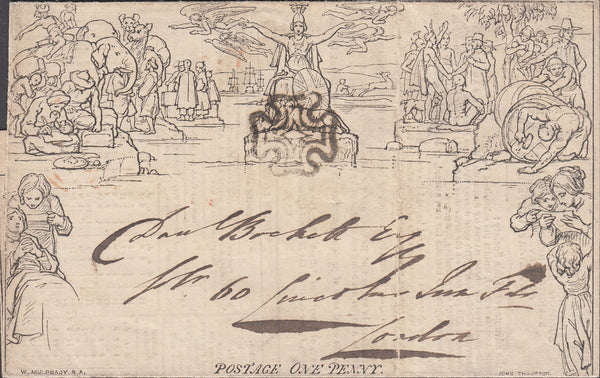 Danl Bockett Esq
No 60 Lincolns Inn Flds
London
W. MULREADY. R.A.
POSTAGE ONE PENNY.
JOHN THOMPSON